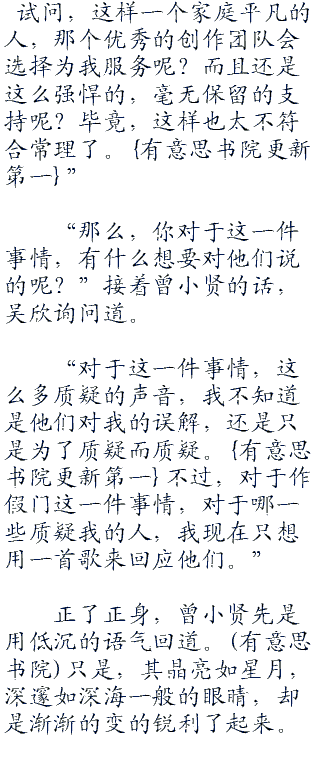 试问，这样一个家庭平凡的
人，那个优秀的创作团队会
选择为我服务呢？而且还是
这么强悍的，毫无保留的支
持呢？毕竟，这样也太不符
合常理了。{有意思书院更新
第一}”
“那么，你对于这一件
事情，有什么想要对他们说
的呢？”接着曾小贤的话，
吴欣询问道。
“对于这一件事情，这
么多质疑的声音，我不知道
是他们对我的误解，还是只
是为了质疑而质疑。{有意思
书院更新第一}不过，对于作
假门这一件事情，对于哪一
些质疑我的人，我现在只想
用一首歌来回应他们。”
正了正身，曾小贤先是
用低沉的语气回道。(有意思
书院)只是，其晶亮如星月，
深邃如深海一般的眼睛，却
是渐渐的变的锐利了起来。